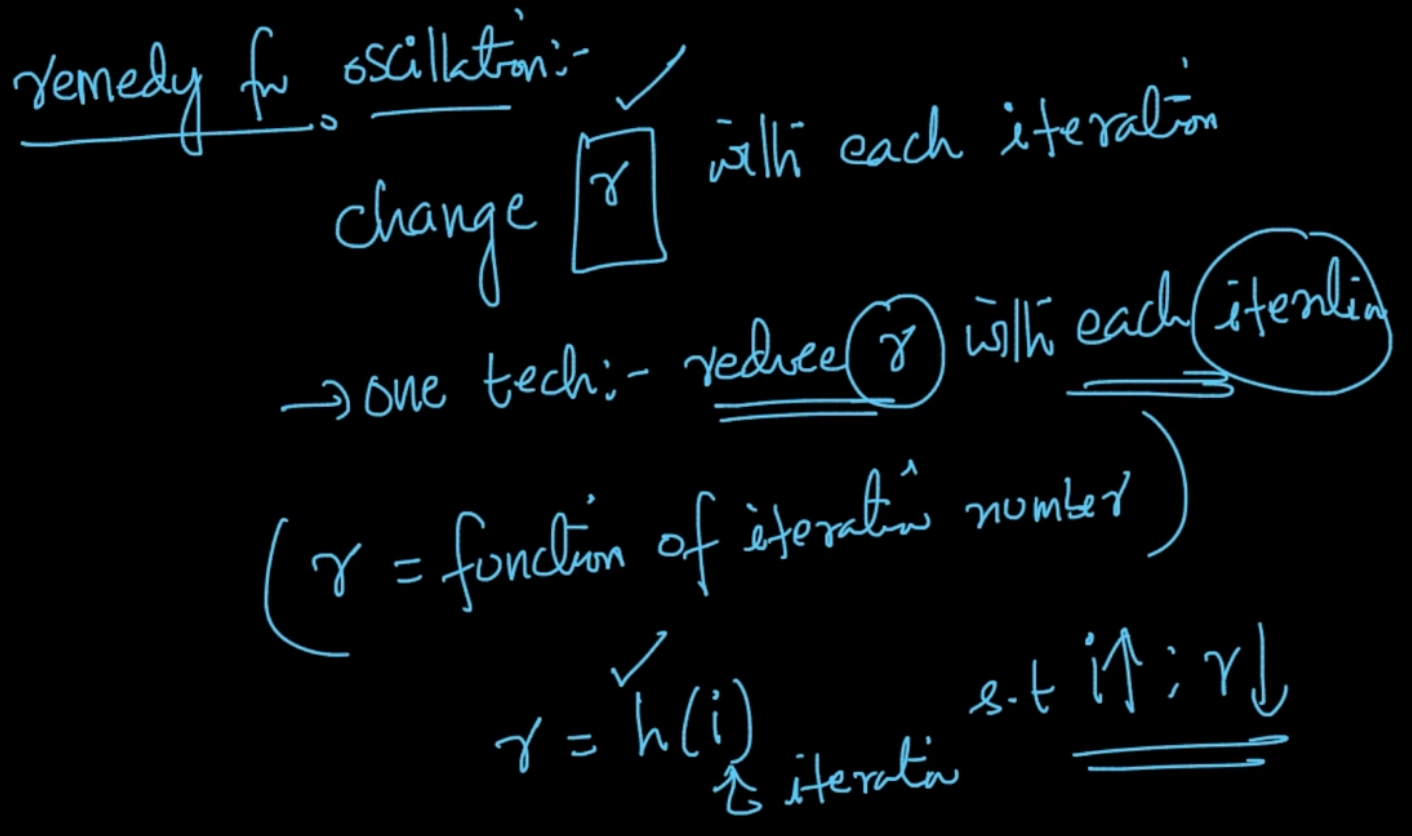 remedy for oscillation:-
change r with each iteration
→ one tech:- reduce r with each iteration
( r = function of iteration number )
r = h(i) s.t i↑ ; r↓
↑ iteration